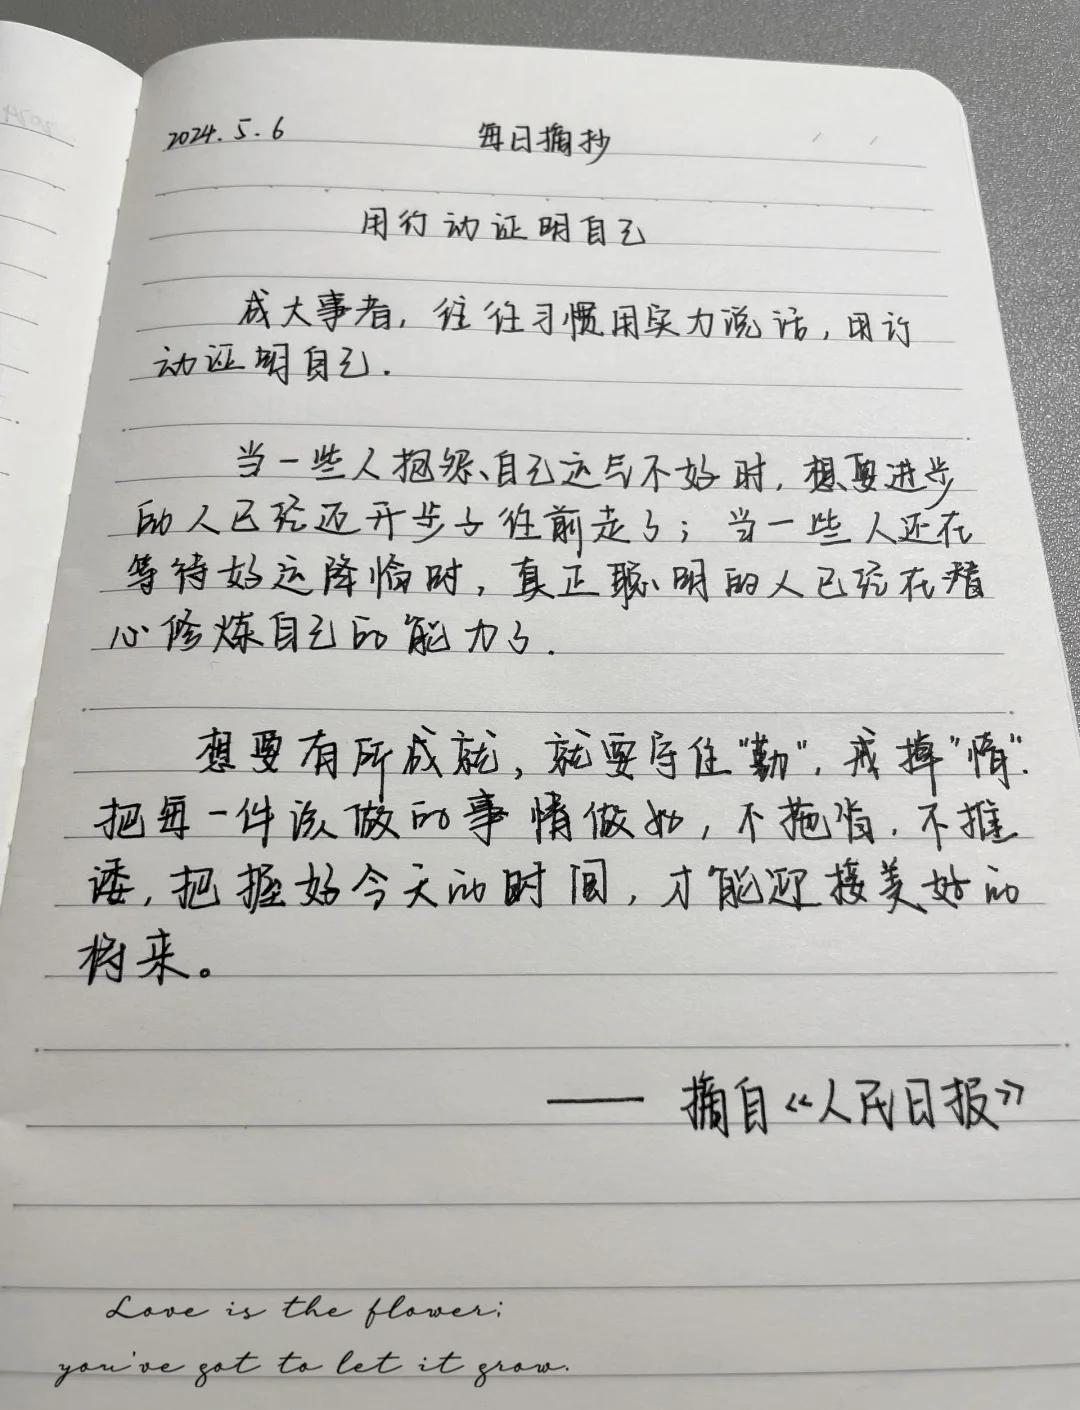 2024.5.6 每日摘抄
用行动证明自己
成大事者，往往习惯用实力说话，用行
动证明自己.
当一些人抱怨、自己运气不好时，想要进步
的人已经迈开步子往前走了；当一些人还在
等待好运降临时，真正聪明的人已经在潜
心修炼自己的能力了.
想要有所成就，就要守住"勤"，戒掉"惰".
把每一件该做的事情做好，不拖沓，不推
诿，把握好今天的时间，才能迎接美好的
将来。
—— 摘自《人民日报》
Love is the flower;
you've got to let it grow.